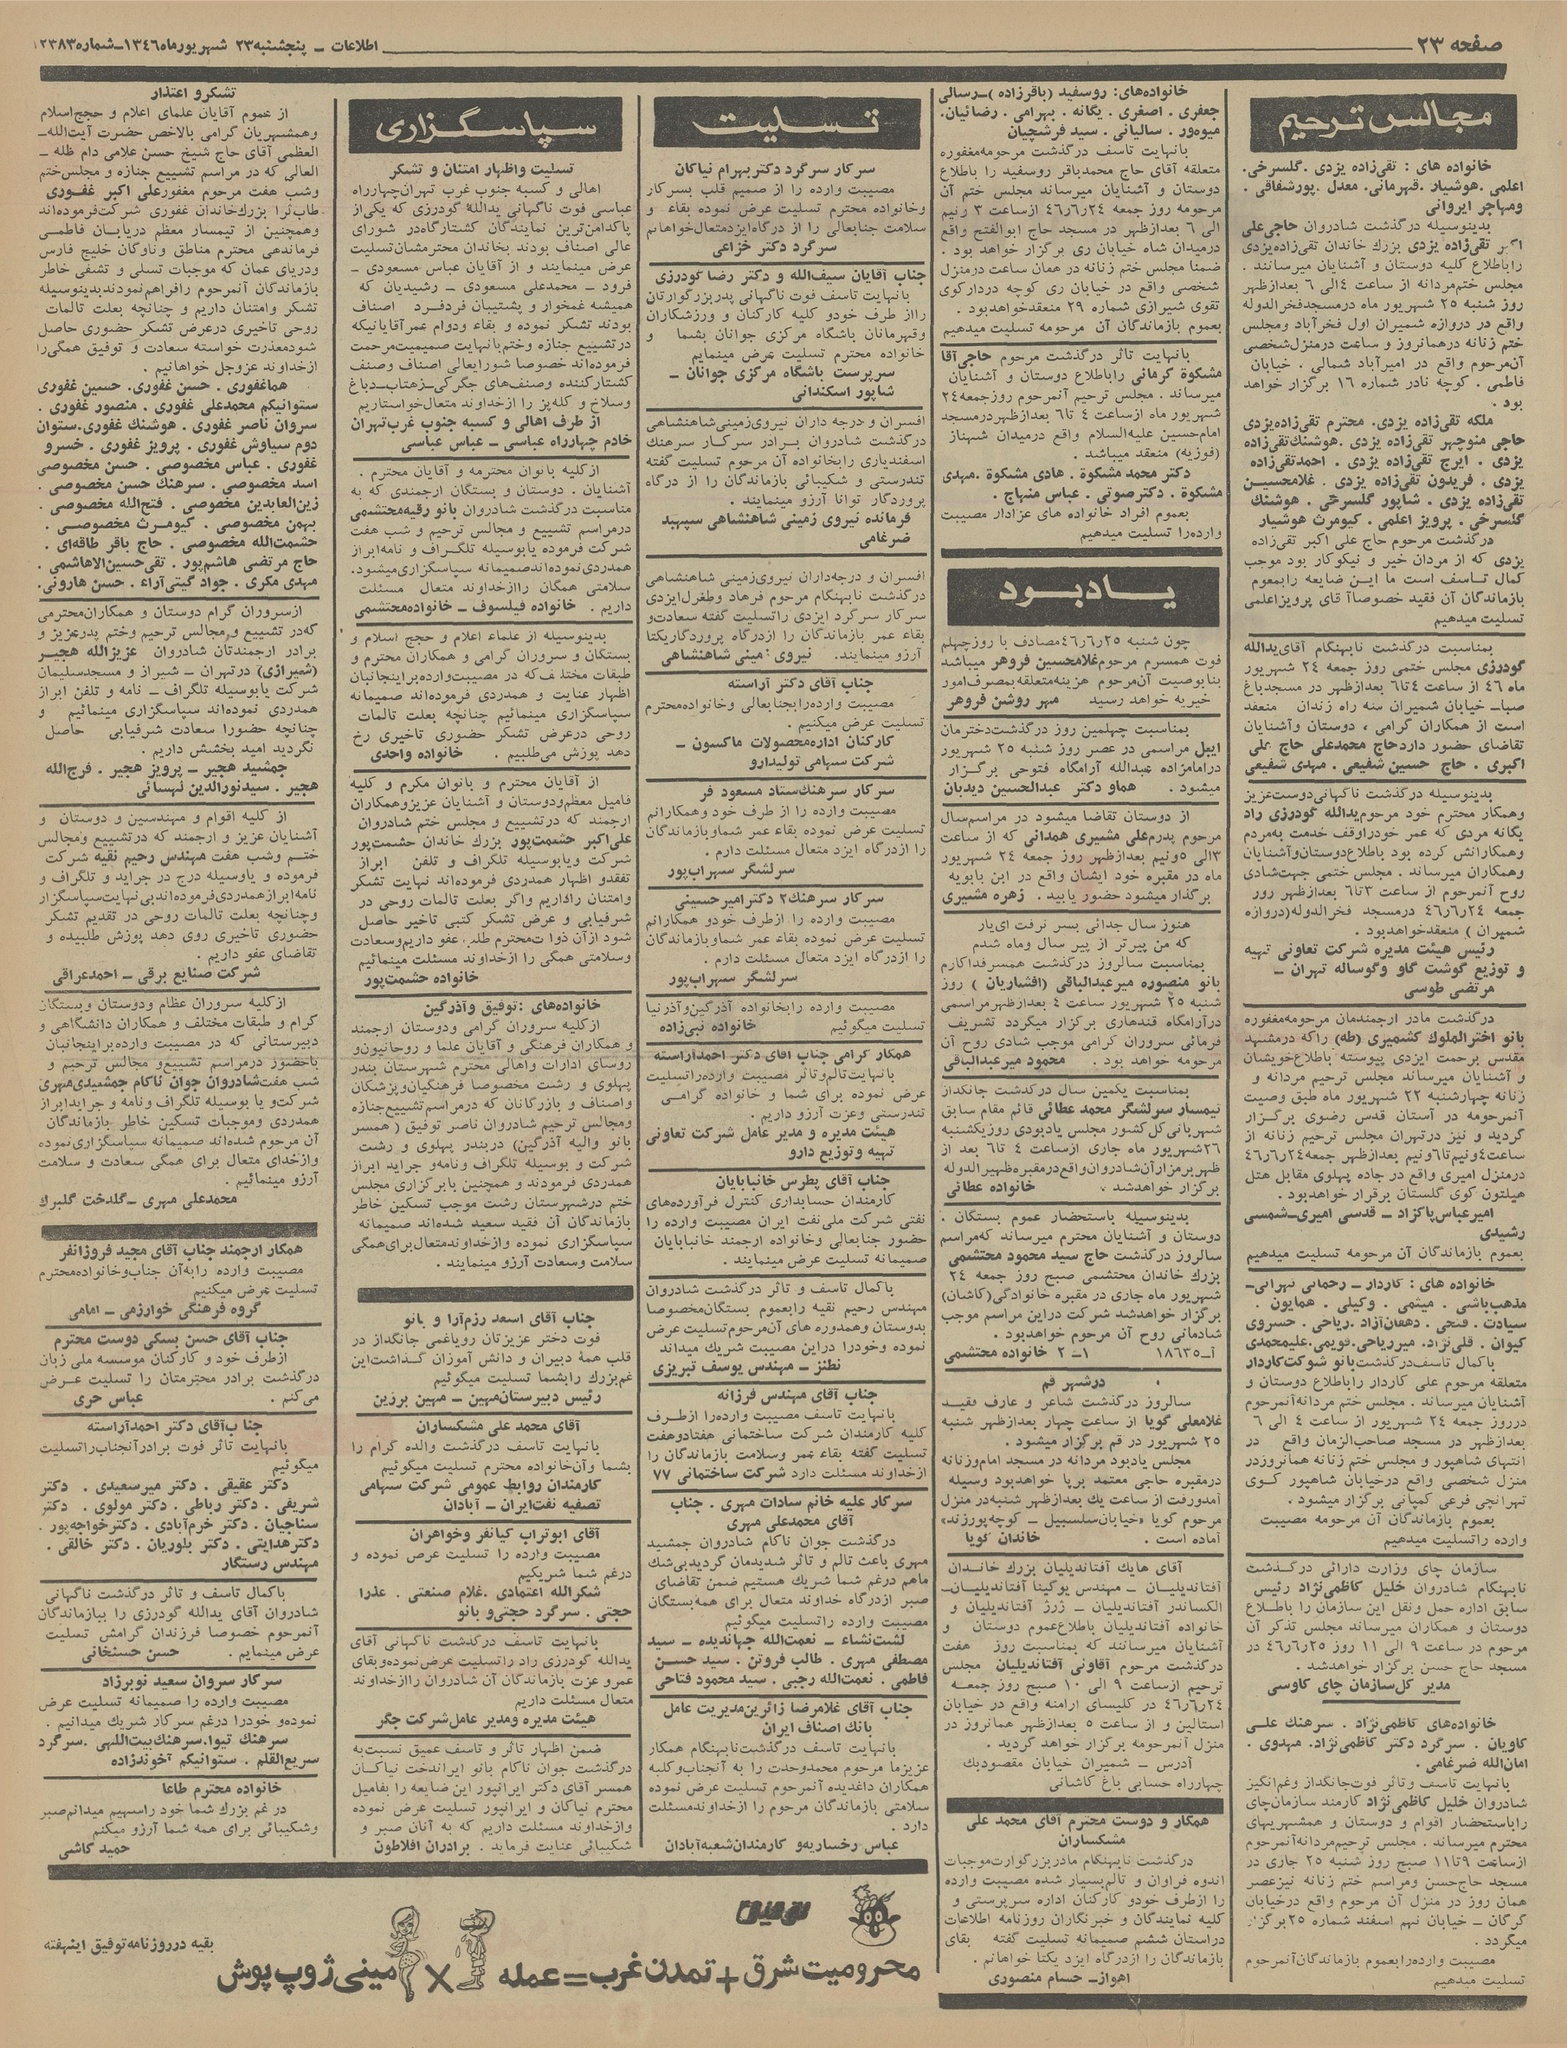 صفحه ۲۳
اطلاعات – پنجشنبه ۲۳ شهریور ماه ۱۳۴۶ – شماره ۱۲۳۸۳
مجالس ترحیم
خانواده های : تقی‌زاده یزدی . گلسرخی .
اعلمی . هوشیار . قهرمانی . معدل . پورشفاقی .
ومهاجر ایروانی
بدینوسیله درگذشت شادروان حاجی‌علی
اکبر تقی‌زاده یزدی بزرك خاندان تقی‌زاده‌یزدی
را باطلاع کلیه دوستان و آشنایان میرسانند .
مجلس ختم‌مردانه از ساعت ۴ الی ۶ بعدازظهر
روز شنبه ۲۵ شهریور ماه درمسجدفخرالدوله
واقع در دروازه شمیران اول فخرآباد ومجلس
ختم زنانه درهمانروز و ساعت درمنزل‌شخصی
آن‌مرحوم واقع در امیرآباد شمالی . خیابان
فاطمی . کوچه نادر شماره ۱۶ برگزار خواهد
بود .
ملکه تقی‌زاده یزدی . محترم تقی‌زاده‌یزدی
حاجی منوچهر تقی‌زاده یزدی . هوشنك‌تقی‌زاده
یزدی . ایرج تقی‌زاده یزدی . احمدتقی‌زاده
یزدی . فریدون تقی‌زاده یزدی . غلامحسین
تقی‌زاده یزدی . شاپور گلسرخی . هوشنك
گلسرخی . پرویز اعلمی . کیومرث هوشیار
درگذشت مرحوم حاج علی اکبر تقی‌زاده
یزدی که از مردان خیر و نیکوکار بود موجب
کمال تاسف است ما این ضایعه رابعموم
بازماندگان آن فقید خصوصاً آقای پرویزاعلمی
تسلیت میدهیم
بمناسبت درگذشت نابهنگام آقای‌یدالله
گودرزی مجلس ختمی روز جمعه ۲۴ شهریور
ماه ۴۶ از ساعت ۴ تا ۶ بعدازظهر در مسجدباغ
صبا – خیابان شمیران سه راه زندان منعقد
است از همکاران گرامی ، دوستان وآشنایان
تقاضای حضور دارد حاج محمدعلی حاج علی
اکبری . حاج حسین شفیعی . مهدی شفیعی
بدینوسیله درگذشت ناگهانی دوست‌عزیز
وهمکار محترم خود مرحوم‌یدالله گودرزی راد
یگانه مردی که عمر خودراوقف خدمت به‌مردم
وهمکارانش کرده بود باطلاع‌دوستان‌وآشنایان
وهمکاران میرساند . مجلس ختمی جهت‌شادی
روح آنمرحوم از ساعت ۳ تا ۶ بعدازظهر روز
جمعه ۴۶٫۶٫۲۴ درمسجد فخرالدوله(دروازه
شمیران ) منعقدخواهدبود .
رئیس هیئت مدیره شرکت تعاونی تهیه
و توزیع گوشت گاو وگوساله تهران –
مرتضی طوسی
درگذشت مادر ارجمندمان مرحومه‌مغفوره
بانو اخترالملوك کشمیری (طه) راکه درمشهد
مقدس برحمت ایزدی پیوسته باطلاع‌خویشان
و آشنایان میرساند مجلس ترحیم مردانه و
زنانه چهارشنبه ۲۲ شهریور ماه طبق وصیت
آنمرحومه در آستان قدس رضوی برگزار
گردید و نیز درتهران مجلس ترحیم زنانه از
ساعت‌۴ونیم‌تا۶ونیم بعدازظهر جمعه۴۶٫۶٫۲۴
درمنزل امیری واقع در جاده پهلوی مقابل هتل
هیلتون کوی گلستان برقرار خواهدبود .
امیرعباس‌پاکزاد – قدسی امیری – شمسی
رشیدی
بعموم بازماندگان آن مرحومه تسلیت میدهیم
خانواده های : کاردار – رحمانی تهرانی –
مذهب‌باشی . میثمی . وکیلی . همایون .
سیادت . فتحی . دهقان‌آزاد . ریاحی . خسروی
کیوان . قلی‌نژاد . میرریاحی . قویمی . علیمحمدی
باکمال تاسف‌درگذشت‌بانو شوکت‌کاردار
متعلقه مرحوم علی کاردار راباطلاع دوستان و
آشنایان میرساند . مجلس ختم مردانه‌آنمرحوم
درروز جمعه ۲۴ شهریور از ساعت ۴ الی ۶
بعدازظهر در مسجد صاحب‌الزمان واقع در
انتهای شاهپور و مجلس ختم زنانه همانروزدر
منزل شخصی واقع درخیابان شاهپور کوی
تهرانچی فرعی کمپانی برگزار میشود .
بعموم بازماندگان آن مرحومه مصیبت
وارده راتسلیت میدهیم
سازمان چای وزارت دارائی درگذشت
نابهنگام شادروان خلیل کاظمی‌نژاد رئیس
سابق اداره حمل ونقل این سازمان را باطلاع
دوستان و همکاران میرساند مجلس تذکر آن
مرحوم در ساعت ۹ الی ۱۱ روز ۴۶٫۶٫۲۵ در
مسجد حاج حسن برگزار خواهدشد .
مدیر کل سازمان چای کاوسی
خانواده‌های کاظمی‌نژاد . سرهنك علی
کاویان . سرگرد دکتر کاظمی‌نژاد . مهدوی .
امان‌الله ضرغامی .
بانهایت تاسف وتاثر فوت‌جانگداز وغم‌انگیز
شادروان خلیل کاظمی‌نژاد کارمند سازمان‌چای
راباستحضار اقوام و دوستان و همشهریهای
محترم میرساند . مجلس ترحیم‌مردانه‌آنمرحوم
ازساعت ۹تا۱۱ صبح روز شنبه ۲۵ جاری در
مسجد حاج‌حسن ومراسم ختم زنانه نیزعصر
همان روز در منزل آن مرحوم واقع درخیابان
گرگان – خیابان نهم اسفند شماره ۲۵ برگزار
میگردد .
مصیبت وارده‌رابعموم بازماندگان‌آنمرحوم
تسلیت میدهیم
خانواده‌های: روسفید (باقرزاده)–رسالی
جعفری . اصغری . یگانه . بهرامی . رضائیان .
میوه‌ور . سالیانی . سید فرشچیان
بانهایت تاسف درگذشت مرحومه‌مغفوره
متعلقه آقای حاج محمدباقر روسفید را باطلاع
دوستان و آشنایان میرساند مجلس ختم آن
مرحومه روز جمعه ۴۶٫۶٫۲۴ ازساعت ۳ ونیم
الی ۶ بعدازظهر در مسجد حاج ابوالفتح واقع
درمیدان شاه خیابان ری برگزار خواهد بود .
ضمناً مجلس ختم زنانه در همان ساعت درمنزل
شخصی واقع در خیابان ری کوچه دردارکوی
تقوی شیرازی شماره ۲۹ منعقدخواهدبود .
بعموم بازماندگان آن مرحومه تسلیت میدهیم
بانهایت تاثر درگذشت مرحوم حاجی‌آقا
مشکوة کرمانی راباطلاع دوستان و آشنایان
میرساند . مجلس ترحیم آنمرحوم روزجمعه۲۴
شهریور ماه ازساعت ۴ تا ۶ بعدازظهر درمسجد
امام‌حسین علیه‌السلام واقع درمیدان شهناز
(فوزیه) منعقد میباشد .
دکتر محمد مشکوة . هادی مشکوة . مهدی
مشکوة . دکترصوتی . عباس منهاج .
بعموم افراد خانواده های عزادار مصیبت
وارده‌را تسلیت میدهیم
یادبود
چون شنبه ۴۶٫۶٫۲۵مصادف با روزچهلم
فوت همسرم مرحوم‌غلامحسین فروهر میباشد
بنابوصیت آن‌مرحوم هزینه‌متعلقه‌بمصرف‌امور
خیریه خواهد رسید مهر روشن فروهر
بمناسبت چهلمین روز درگذشت‌دخترمان
ایبل مراسمی در عصر روز شنبه ۲۵ شهریور
درامامزاده عبدالله آرامگاه فتوحی برگزار
میشود . هماو دکتر عبدالحسین دیدبان
از دوستان تقاضا میشود در مراسم‌سال
مرحوم پدرم‌علی مشیری همدانی که از ساعت
۳الی ۵ونیم بعدازظهر روز جمعه ۲۴ شهریور
ماه در مقبره خود ایشان واقع در ابن بابویه
برگذار میشود حضور یابید . زهره مشیری
هنوز سال جدائی بسر نرفت ای‌یار
که من پیرتر از پیر سال وماه شدم
بمناسبت سالروز درگذشت همسرفداکارم
بانو منصوره میرعبدالباقی (افشاریان ) روز
شنبه ۲۵ شهریور ساعت ۴ بعدازظهرمراسمی
درآرامگاه قندهاری برگزار میگردد تشریف
فرمائی سروران گرامی موجب شادی روح آن
مرحومه خواهد بود . محمود میرعبدالباقی
بمناسبت یکمین سال درگذشت جانگداز
تیمسار سرلشگر محمد عطائی قائم مقام سابق
شهربانی کل کشور مجلس یادبودی روز یکشنبه
۲۶شهریور ماه جاری ازساعت ۴ تا ۶ بعد از
ظهر برمزارآن‌شادروان‌واقع‌درمقبره‌ظهیرالدوله
برگزار خواهدشد . خانواده عطائی
بدینوسیله باستحضار عموم بستگان .
دوستان و آشنایان محترم میرساند که‌مراسم
سالروز درگذشت حاج سید محمود محتشمی
بزرك خاندان محتشمی صبح روز جمعه ۲۴
شهریور ماه جاری در مقبره خانوادگی(کاشان)
برگزار خواهدشد شرکت دراین مراسم موجب
شادمانی روح آن مرحوم خواهدبود .
آ–۱۸۶۳۵ ۱– ۲ خانواده محتشمی
درشهر قم
سالروز درگذشت شاعر و عارف فقید
غلامعلی گویا از ساعت چهار بعدازظهر شنبه
۲۵ شهریور در قم برگزار میشود .
مجلس یادبود مردانه در مسجد امام‌وزنانه
درمقبره حاجی معتمد برپا خواهدبود وسیله
آمدورفت از ساعت یك بعدازظهر شنبه‌در منزل
مرحوم گویا «خیابان‌سلسبیل – کوچه‌پورزند»
آماده است . خاندان گویا
آقای هایك آفتاندیلیان بزرك خاندان
آفتاندیلیان – مهندس یوگینا آفتاندیلیان–
الکساندر آفتاندیلیان – ژرژ آفتاندیلیان و
خانواده آفتاندیلیان باطلاع‌عموم دوستان و
آشنایان میرسانند که بمناسبت روز هفت
درگذشت مرحوم آقاونی آفتاندیلیان مجلس
ترحیم ازساعت ۹ الی ۱۰ صبح روز جمعه
۴۶٫۶٫۲۴ در کلیسای ارامنه واقع در خیابان
استالین و از ساعت ۵ بعدازظهر همانروز در
منزل آنمرحومه برگزار خواهد گردید .
آدرس – شمیران خیابان مقصودبك
چهارراه حسابی باغ کاشانی
همکار و دوست محترم آقای محمد علی
مشکساران
درگذشت نابهنگام مادربزرگوارت‌موجبات
اندوه فراوان و تالم‌بسیار شده مصیبت وارده
را ازطرف خودو کارکنان اداره سرپرستی و
کلیه نمایندگان و خبرنگاران روزنامه اطلاعات
دراستان ششم صمیمانه تسلیت گفته بقای
بازماندگان را ازدرگاه ایزد یکتا خواهانم .
اهواز– حسام منصوری
تسلیت
سرکار سرگرد دکتر بهرام نیاکان
مصیبت وارده را از صمیم قلب بسرکار
وخانواده محترم تسلیت عرض نموده بقاء و
سلامت جنابعالی را از درگاه ایزدمتعال‌خواهانم
سرگرد دکتر خزاعی
جناب آقایان سیف‌الله و دکتر رضا گودرزی
بانهایت تاسف فوت ناگهانی پدربزرگوارتان
رااز طرف خودو کلیه کارکنان و ورزشکاران
وقهرمانان باشگاه مرکزی جوانان بشما و
خانواده محترم تسلیت عرض مینمایم
سرپرست باشگاه مرکزی جوانان –
شاپور اسکندانی
افسران و درجه داران نیروی‌زمینی‌شاهنشاهی
درگذشت شادروان برادر سرکار سرهنك
اسفندیاری رابخانواده آن مرحوم تسلیت گفته
تندرستی و شکیبائی بازماندگان را از درگاه
پروردگار توانا آرزو مینمایند .
فرمانده نیروی زمینی شاهنشاهی سپهبد
ضرغامی
افسران و درجه‌داران نیروی‌زمینی شاهنشاهی
درگذشت نابهنگام مرحوم فرهاد وطغرل‌ایزدی
سرکار سرگرد ایزدی راتسلیت گفته سعادت‌و
بقاء عمر بازماندگان را ازدرگاه پروردگاریکتا
آرزو مینمایند . نیروی زمینی شاهنشاهی
جناب آقای دکتر آراسته
مصیبت وارده‌رابجنابعالی وخانواده‌محترم
تسلیت عرض میکنیم .
کارکنان اداره‌محصولات ماکسون –
شرکت سهامی تولیدارو
سرکار سرهنك‌ستاد مسعود فر
مصیبت وارده را از طرف خود وهمکارانم
تسلیت عرض نموده بقاء عمر شماوبازماندگان
را ازدرگاه ایزد متعال مسئلت دارم .
سرلشگر سهراب‌پور
سرکار سرهنك۲ دکترامیرحسینی
مصیبت وارده را ازطرف خودو همکارانم
تسلیت عرض نموده بقاء عمر شماوبازماندگان
را ازدرگاه ایزد متعال مسئلت دارم .
سرلشگر سهراب‌پور
مصیبت وارده رابخانواده آذرگین‌وآذرنیا
تسلیت میگوئیم خانواده نبی‌زاده
همکار گرامی جناب آقای دکتر احمدآراسته
بانهایت‌تالم‌وتاثر مصیبت وارده‌راتسلیت
عرض نموده برای شما و خانواده گرامی
تندرستی وعزت آرزو داریم .
هیئت مدیره و مدیر عامل شرکت تعاونی
تهیه وتوزیع دارو
جناب آقای پطرس خانبابایان
کارمندان حسابداری کنترل فرآورده‌های
نفتی شرکت ملی نفت ایران مصیبت وارده را
حضور جنابعالی وخانواده ارجمند خانبابایان
صمیمانه تسلیت عرض مینمایند .
باکمال تاسف و تاثر درگذشت شادروان
مهندس رحیم نقیه رابعموم بستگان‌مخصوصاً
بدوستان وهمدوره های آن‌مرحوم‌تسلیت عرض
نموده وخودرا دراین مصیبت شریك میداند
نطنز – مهندس یوسف تبریزی
جناب آقای مهندس فرزانه
بانهایت تاسف مصیبت وارده‌را ازطرف
کلیه کارمندان شرکت ساختمانی هفتادوهفت
تسلیت گفته بقاء عمر وسلامت بازماندگان را
ازخداوند مسئلت دارد شرکت ساختمانی ۷۷
سرکار علیه خانم سادات مهری . جناب
آقای محمدعلی مهری
درگذشت جوان ناکام شادروان جمشید
مهری باعث تالم و تاثر شدیدمان گردیدبی‌شك
ماهم درغم شما شریك هستیم ضمن تقاضای
صبر ازدرگاه خداوند متعال برای همه‌بستگان
مصیبت وارده راتسلیت میگوئیم
لشت‌نشاء – نعمت‌الله جهاندیده – سید
مصطفی مهری . طالب فروتن . سید حسن
فاطمی . نعمت‌الله رجبی . سید محمود فتاحی
جناب آقای غلامرضا زائرین‌مدیریت عامل
بانك اصناف ایران
بانهایت تاسف درگذشت‌نابهنگام همکار
عزیزما مرحوم محمدوحدت را به آنجناب‌وکلیه
همکاران داغدیده آنمرحوم تسلیت عرض نموده
سلامتی بازماندگان مرحوم را ازخداوندمسئلت
دارد .
عباس رخساریه‌و کارمندان‌شعبه‌آبادان
سپاسگزاری
تسلیت واظهار امتنان و تشکر
اهالی و کسبه جنوب غرب تهران‌چهارراه
عباسی فوت ناگهانی یدالله گودرزی که یکی‌از
پاکدامن‌ترین نمایندگان کشتارگاه‌در شورای
عالی اصناف بودند بخاندان محترمشان‌تسلیت
عرض مینمایند و از آقایان عباس مسعودی –
فرود – محمدعلی مسعودی – رشیدیان که
همیشه غمخوار و پشتیبان فردفرد اصناف
بودند تشکر نموده و بقاء ودوام عمرآقایانیکه
درتشییع جنازه وختم‌بانهایت صمیمیت‌مرحمت
فرموده‌اند خصوصاً شورایعالی اصناف وصنف
کشتارکننده وصنف‌های جگرکی–زهتاب–دباغ
وسلاخ و کله‌پز را ازخداوند متعال‌خواستاریم
از طرف اهالی و کسبه جنوب غرب‌تهران
خادم چهارراه عباسی – عباس عباسی
ازکلیه بانوان محترمه و آقایان محترم .
آشنایان . دوستان و بستگان ارجمندی که به
مناسبت درگذشت شادروان بانو رقیه‌محتشمی
درمراسم تشییع و مجالس ترحیم و شب هفت
شرکت فرموده یابوسیله تلگراف و نامه‌ابراز
همدردی نموده‌اند‌صمیمانه سپاسگزاری‌میشود.
سلامتی همگان راازخداوند متعال مسئلت
داریم . خانواده فیلسوف – خانواده‌محتشمی
بدینوسیله از علماء اعلام و حجج اسلام و
بستگان و سروران گرامی و همکاران محترم و
طبقات مختلف‌که در مصیبت‌وارده‌براینجانبان
اظهار عنایت و همدردی فرموده‌اند صمیمانه
سپاسگزاری مینمائیم چنانچه بعلت تالمات
روحی درعرض تشکر حضوری تاخیری رخ
دهد پوزش می‌طلبیم . خانواده واحدی
از آقایان محترم و بانوان مکرم و کلیه
فامیل معظم‌ودوستان و آشنایان عزیزوهمکاران
ارجمند که درتشییع و مجلس ختم شادروان
علی‌اکبر حشمت‌پور بزرك خاندان حشمت‌پور
شرکت ویابوسیله تلگراف و تلفن ابراز
تفقدو اظهار همدردی فرموده‌اند نهایت تشکر
وامتنان راداریم واگر بعلت تالمات روحی در
شرفیابی و عرض تشکر کتبی تاخیر حاصل
شود ازآن ذوات‌محترم طلب عفو داریم‌وسعادت
وسلامتی همگی را ازخداوند مسئلت مینمائیم
خانواده حشمت‌پور
خانواده‌های :توفیق وآذرگین
ازکلیه سروران گرامی ودوستان ارجمند
و همکاران فرهنگی و آقایان علما و روحانیون‌و
روسای ادارات واهالی محترم شهرستان بندر
پهلوی و رشت مخصوصاً فرهنگیان‌وپزشکان
واصناف و بازرگانان که درمراسم‌تشییع‌جنازه
ومجالس ترحیم شادروان ناصر توفیق (همسر
بانو والیه آذرگین) دربندر پهلوی و رشت
شرکت و بوسیله تلگراف ونامه‌و جراید ابراز
همدردی فرمودند و همچنین بابرگزاری مجلس
ختم درشهرستان رشت موجب تسکین خاطر
بازماندگان آن فقید سعید شده‌اند صمیمانه
سپاسگزاری نموده وازخداوندمتعال‌برای‌همگی
سلامت وسعادت آرزو مینمایند .
جناب آقای اسعد رزم‌آرا و بانو
فوت دختر عزیزتان رویاغمی جانگداز در
قلب همهٔ دبیران و دانش آموزان گذاشت‌این
غم‌بزرك رابشما تسلیت میگوئیم
رئیس دبیرستان‌مهین – مهین برزین
آقای محمد علی مشکساران
بانهایت تاسف درگذشت والده گرام را
بشما وآن‌خانواده محترم تسلیت میگوئیم
کارمندان روابط عمومی شرکت سهامی
تصفیه نفت‌ایران – آبادان
آقای ابوتراب کیانفر وخواهران
مصیبت وارده را تسلیت عرض نموده و
درغم شما شریکیم
شکرالله اعتمادی . غلام صنعتی . عذرا
حجتی . سرگرد حجتی‌و بانو
بانهایت تاسف درگذشت ناگهانی آقای
یدالله گودرزی راد راتسلیت عرض‌نموده‌وبقای
عمرو عزت بازماندگان آن شادروان راازخداوند
متعال مسئلت داریم
هیئت مدیره ومدیر عامل‌شرکت جگر
ضمن اظهار تاثر و تاسف عمیق نسبت‌به
درگذشت جوان ناکام بانو ایراندخت نیاکان
همسر آقای دکتر ایرانپور این ضایعه را بفامیل
محترم نیاکان و ایرانپور تسلیت عرض نموده
وازخداوند مسئلت داریم که به آنان صبر و
شکیبائی عنایت فرماید . برادران افلاطون
تشکر و اعتذار
از عموم آقایان علمای اعلام و حجج‌اسلام
وهمشهریان گرامی بالاخص حضرت آیت‌الله–
العظمی آقای حاج شیخ حسن علامی دام ظله –
العالی که در مراسم تشییع جنازه و مجلس‌ختم
وشب هفت مرحوم مغفورعلی اکبر غفوری
طاب‌ثرا بزرك‌خاندان غفوری شرکت‌فرموده‌اند
وهمچنین از تیمسار معظم دریابان فاطمی
فرماندهی محترم مناطق وناوگان خلیج فارس
ودریای عمان که موجبات تسلی و تشفی خاطر
بازماندگان آنمرحوم رافراهم‌نمودند‌بدینوسیله
تشکر وامتنان داریم و چنانچه بعلت تالمات
روحی تاخیری درعرض تشکر حضوری حاصل
شودمعذرت خواسته سعادت و توفیق همگی‌را
ازخداوند عزوجل خواهانیم .
هماغفوری . حسن غفوری . حسین غفوری
ستوانیکم محمدعلی غفوری . منصور غفوری .
سروان ناصر غفوری . هوشنك غفوری . ستوان
دوم سیاوش غفوری . پرویز غفوری . خسرو
غفوری . عباس مخصوصی . حسن مخصوصی
اسد مخصوصی . سرهنك حسن مخصوصی .
زین‌العابدین مخصوصی . فتح‌الله مخصوصی .
بهمن مخصوصی . کیومرث مخصوصی .
حشمت‌الله مخصوصی . حاج باقر طاقه‌ای .
حاج مرتضی هاشم‌پور . تقی‌حسین‌الاهاشمی .
مهدی مکری . جواد گیتی‌آراء . حسن هارونی .
ازسروران گرام دوستان و همکاران‌محترمی
که‌در تشییع و مجالس ترحیم وختم پدرعزیز و
برادر ارجمندتان شادروان عزیزالله هجیر
(شیرازی) درتهران – شیراز و مسجدسلیمان
شرکت یابوسیله تلگراف – نامه و تلفن ابراز
همدردی نموده‌اند سپاسگزاری مینمائیم و
چنانچه حضوراً سعادت شرفیابی حاصل
نگردید امید بخشش داریم .
جمشید هجیر – پرویز هجیر . فرج‌الله
هجیر . سیدنورالدین نهسائی
از کلیه اقوام و مهندسین و دوستان و
آشنایان عزیز و ارجمند که درتشییع ومجالس
ختم وشب هفت مهندس رحیم نقیه شرکت
فرموده و یاوسیله درج در جراید و تلگراف و
نامه‌ابرازهمدردی‌فرموده‌اندبی‌نهایت‌سپاسگزار
وچنانچه بعلت تالمات روحی در تقدیم تشکر
حضوری تاخیری روی دهد پوزش طلبیده و
تقاضای عفو داریم .
شرکت صنایع برقی – احمدعراقی
ازکلیه سروران عظام ودوستان وبستگان
گرام و طبقات مختلف و همکاران دانشگاهی و
دبیرستانی که در مصیبت وارده‌براینجانبان
باحضور درمراسم تشییع‌و مجالس ترحیم و
شب هفت‌شادروان جوان ناکام جمشیدی‌مهری
شرکت‌و یا بوسیله تلگراف ونامه و جرایدابراز
همدردی وموجبات تسکین خاطر بازماندگان
آن مرحوم شده‌اند صمیمانه سپاسگزاری‌نموده
وازخدای متعال برای همگی سعادت و سلامت
آرزو مینمائیم .
محمدعلی مهری –گلدخت گلبرك
همکار ارجمند جناب آقای مجید فروزانفر
مصیبت وارده رابه‌آن جناب‌وخانواده‌محترم
تسلیت عرض میکنیم
گروه فرهنگی خوارزمی – امامی
جناب آقای حسن بسکی دوست محترم
ازطرف خود و کارکنان موسسه ملی زبان
درگذشت برادر محترمتان را تسلیت عرض
می‌کنم . عباس حری
جناب‌آقای دکتر احمدآراسته
بانهایت تاثر فوت برادرآنجناب‌راتسلیت
میگوئیم
دکتر عقیقی . دکتر میرسعیدی . دکتر
شریفی . دکتر رباطی . دکتر مولوی . دکتر
سناجیان . دکتر خرم‌آبادی . دکترخواجه‌پور .
دکترهدایتی . دکتر بلوریان . دکتر خالقی .
مهندس رستگار
باکمال تاسف و تاثر درگذشت ناگهانی
شادروان آقای یدالله گودرزی را ببازماندگان
آنمرحوم خصوصاً فرزندان گرامش تسلیت
عرض مینمایم . حسن حسنخانی
سرکار سروان سعید نوبرزاد
مصیبت وارده را صمیمانه تسلیت عرض
نموده‌و خودرا درغم سرکار شریك میدانیم .
سرهنك تیوا . سرهنك بیت‌اللهی . سرگرد
سریع‌القلم . ستوانیکم آخوندزاده
خانواده محترم طاعا
در غم بزرك شما خود راسهیم میدانم‌صبر
وشکیبائی برای همه شما آرزو میکنم
حمید کاشی
توفیق
محرومیت شرق + تمدن غرب = عمله × مینی ژوپ پوش
بقیه درروزنامه توفیق اینهفته